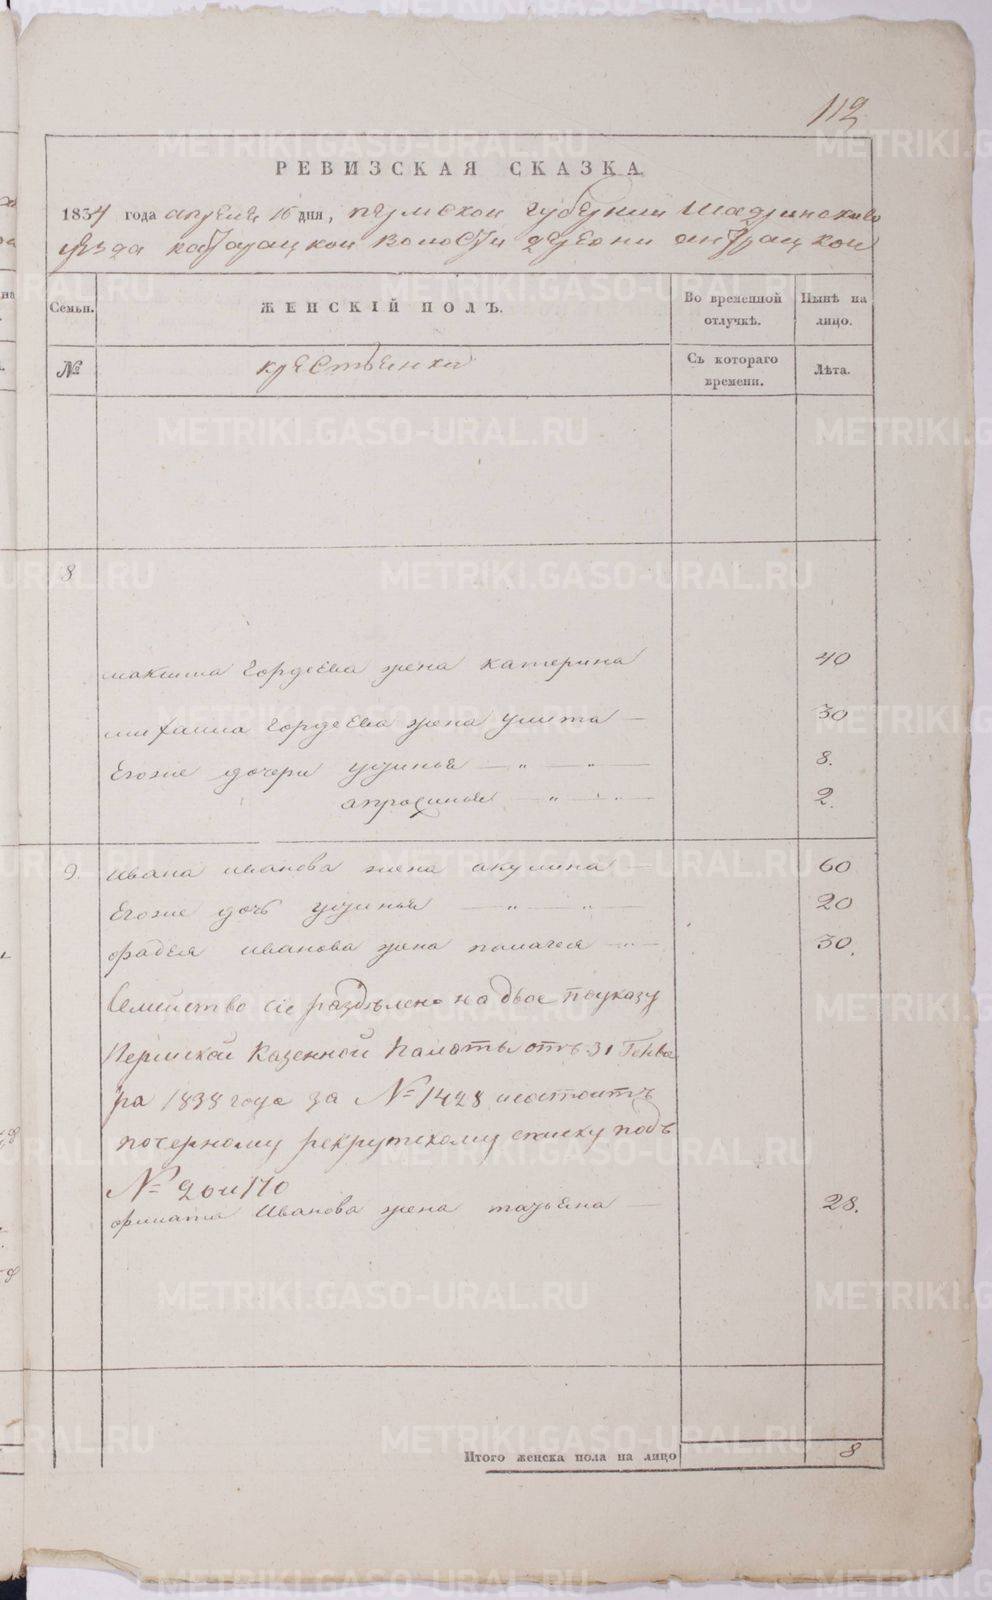 112
РЕВИЗСКАЯ СКАЗКА
1834 года апреля 16 дня, пермской губернии Шадринскаго
уезда катарацкой волости деревни анчрацкой
Семьи.
ЖЕНСКІЙ ПОЛЪ.
Во временной отлучкѣ.
Нынѣ на лицо.
№
крестьянки
Съ котораго времени.
Лѣта.
8
максима Гордеева жена катерина 40
михаила Гордеева жена улита 30
Егоже дочери устинья 8.
апросинья 2.
9. Ивана иванова жена акулина 60
Егоже дочь устинья 20
фадея иванова жена палагея 30.
Семейство сіе раздѣлено на двое по указу
Пермской Казенной Палаты отъ 31 Генва
ря 1838 года за № 1428 и состоитъ
по черному рекрутскому списку подъ
№ 20 и 170
филата Иванова жена татьяна 28.
Итого женска пола на лицо 8
METRIKI.GASO-URAL.RU